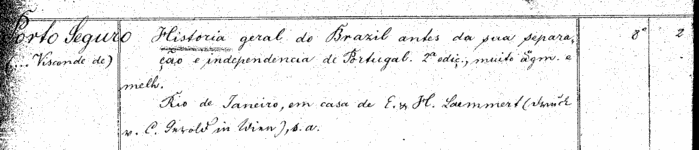 Porto Seguro Historia geral do Brazil antes da sua separa- 8° 2
(... Visconde de) ção e independencia de Portugal. 2ª ediç., muito augm. e
melh.
Rio de Janeiro, em casa de E. & H. Laemmert (Druck
v. C. Gerold in Wien), s.a.